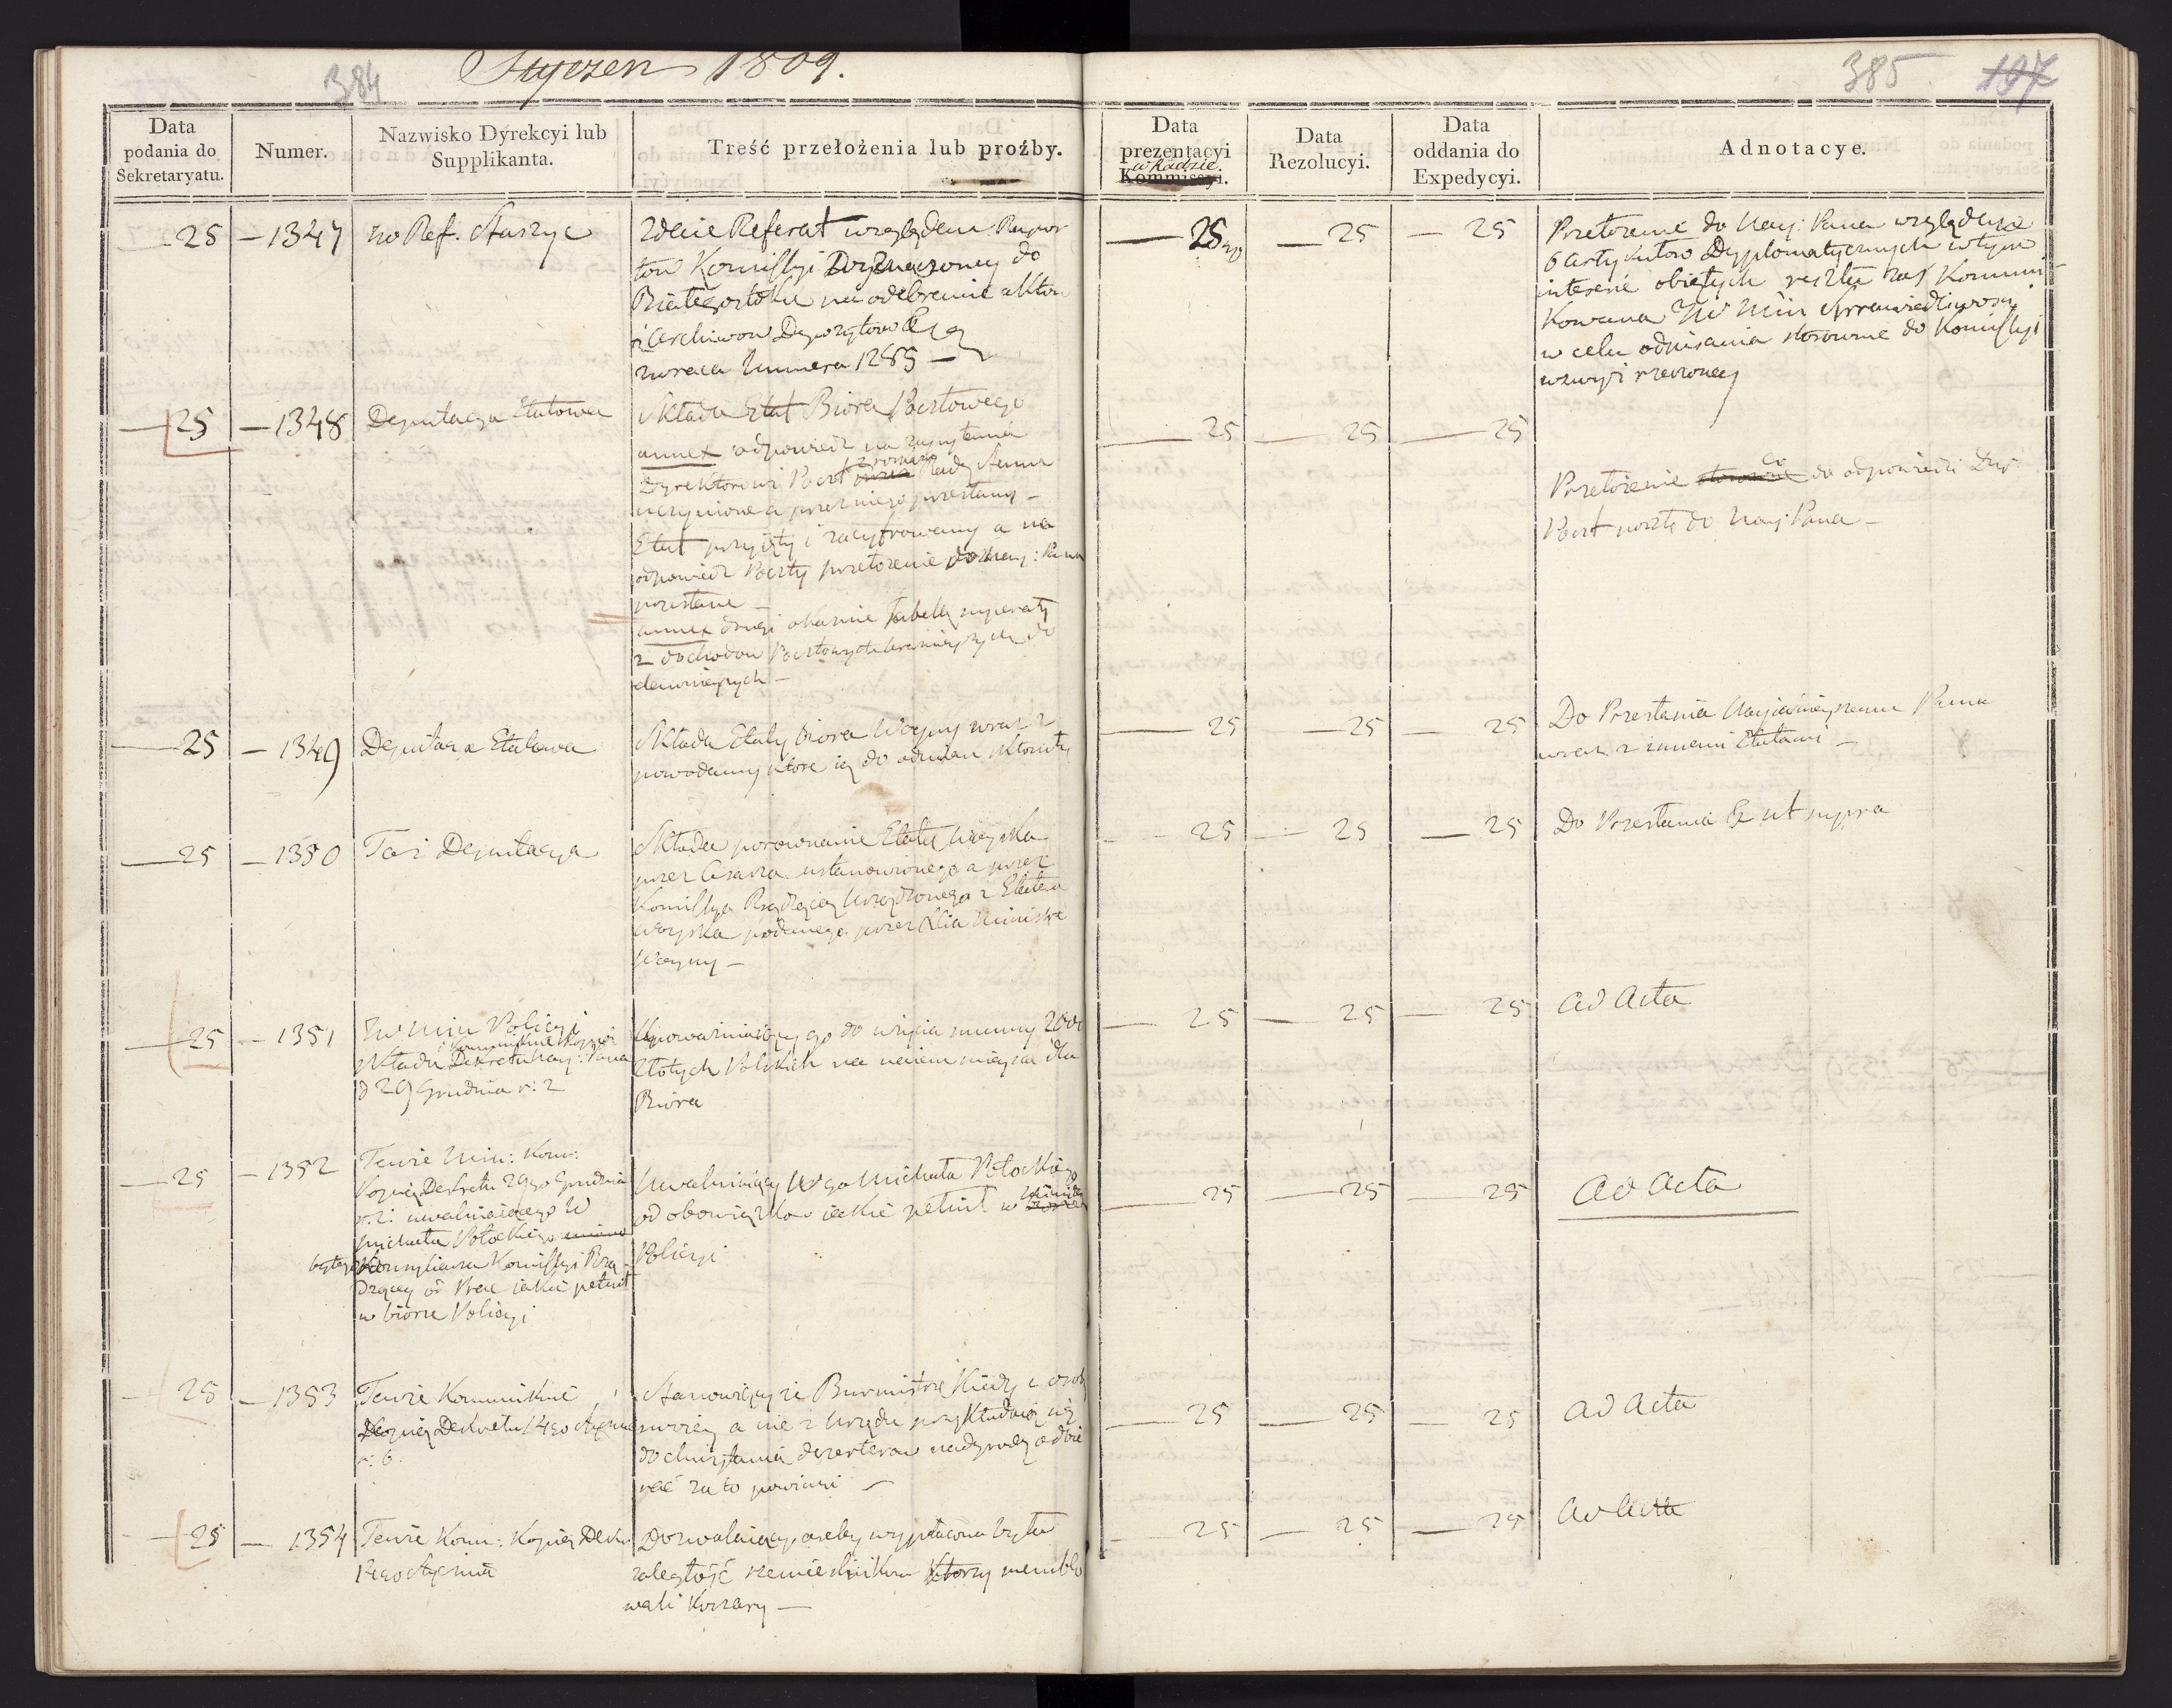 384
Styczeń 1809.
385 197
Data podania do Sekretaryatu.
Numer.
Nazwisko Dyrekcyi lub Supplikanta.
Treść przełożenia lub proźby.
Data prezentacyi w Radzie Kommissyi.
Data Rezolucyi.
Data oddania do Expedycyi.
Adnotacye.
25 — 1347
no Ref. Staszyc
Zdaie Referat względem Rapor
tow Komissyi Wyznaczoney do
Białegostoku na odebranie aktow
i archiwow Depozytow &
zwraca Numera 1285 —
— 25 — 25 — 25
Przełożenie do Nay: Pana względem
6 artykułow Dyplomatycznych w tym
interesie obiętych reszta zaś Kommuni
kowana JW Min Sprawiedliwości
w celu odpisania stosownie do Komissyi
wzwyż rzeczoney
25 — 1348
Deputacya Etatowa
Składa Etat Biora Pocztowego
annex odpowiedz na zapytania
Dyrektorowi Poczt
uczynione a przez niego przesłany —
Etat przyięty i zacyfrowany a na
odpowiedz Poczty przełożenie do Nay: Pana
przesłane —
annex drugi okazuie Tabellę
z dochodow Pocztowych terazniejszych do
dawnieyszych —
25 — 25 — 25
Przełożenie co do odpowiedzi Dyr:
Poczt poszło do Nay: Pana —
25 — 1349
Deputacya Etatowa
Składa Etaty biora Woyny wraz z
powodamy ktore ią do odmian skłoniły
25 — 25 — 25
Do Przesłania Nayiaśnieyszemu Panu
wraz z innemi Etatami —
25 — 1350
Taż Deputacya
Składa porownanie Etatu Woyska
przez Cesarza ustanowionego a przez
Komissya Rządzącą Urządzonego z Etatem
Woyska podanego przez Xcia Ministra
Woyny —
25 — 25 — 25
Do Przesłania & ut supra
25 — 1351
JW Min Policyi
Kommunikuie kopią
Składa Dekretu Nay: Pana
d 29 Grudnia r: z
Upoważniaiący go do użycia summy 2000
Złotych Polskich na naiem mieysca dla
Biora
25 — 25 — 25
ad acta
25 — 1352
Tenże Min: Kom:
Kopią Dekretu 29go Grudnia
r. z. uwalniaiącego W
Michała Potockiego
byłego Konsyliarza Komissyi Rzą-
dzącey od Prac iakie pełnił
w biorze Policyi
Uwalniaiący Wgo Michała Potockiego
od obowiązkow iakie pełnił w
Policyi
25 — 25 — 25
ad acta
25 — 1353
Tenże Kommunikuie
Kopią Dekretu 14go Stycznia
r: b.
Stanowiący że Burmistrze kiedy z osoby
swoiey a nie z Urzędu przykładaią się
do chwytania dezerterow nadgrodę odbie
rać za to powinni —
25 — 25 — 25
ad acta
25 — 1354
Tenże Kom: Kopią Dekr:
14go Stycznia
Dozwalaiący azeby wypłacona była
zaległość rzemieślnikow ktorzy meublo
wali Koszary —
25 — 25 — 25
ad acta